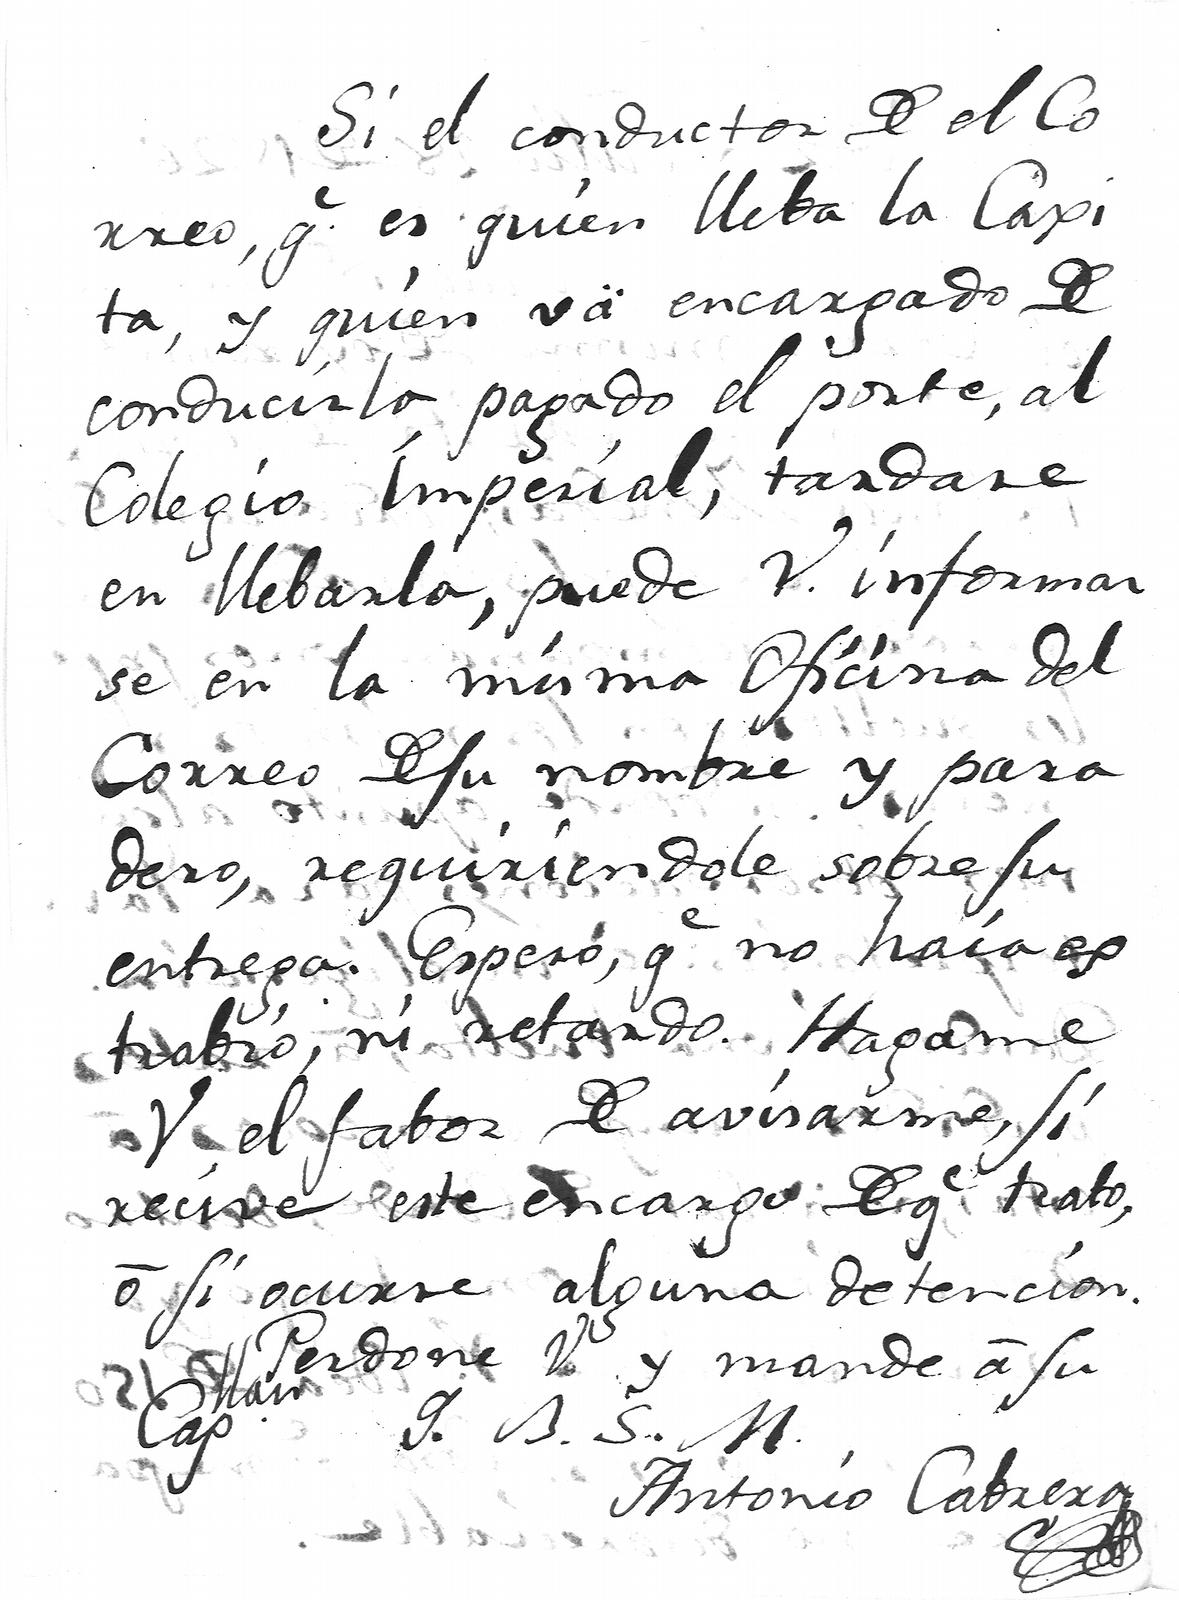 Si el conductor De el Co
rreo, qᵉ es quien lleba la Caxi
ta, y quien vä encargado De
conducirla pagado el porte, al
Colegio Imperial, tardare
en llebarla, puede V. informar
se en la misma Oficina del
Correo De su nombre y para
dero, requiriendole sobre su
entrega. Espero, qᵉ no haia ex
trabio, ni retardo. Hagame
V el fabor De avisarme, si
recive este encargo De qᵉ trato,
ō si ocurre alguna detencion.
Perdone V. y mande ā su
Capⁿ
Q. B. S. M.
Antonio Cabrera